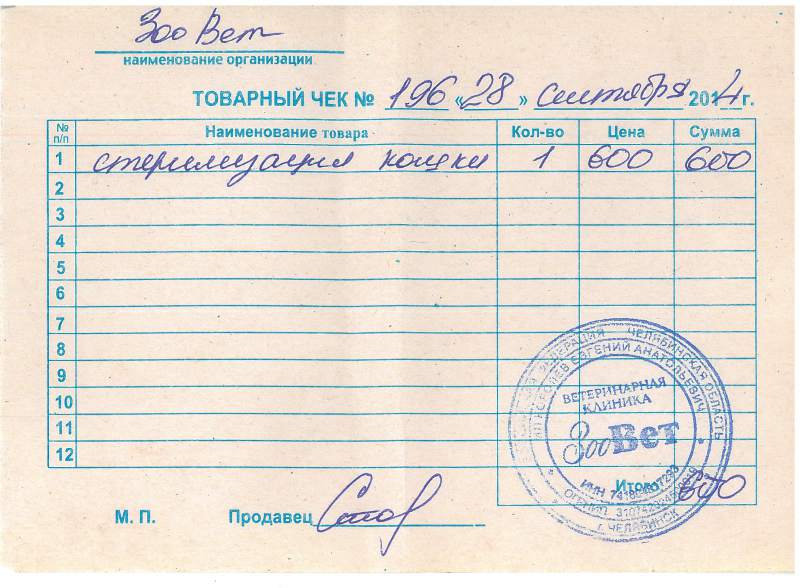 ЗооВет
наименование организации
ТОВАРНЫЙ ЧЕК № 196 «28» сентября 2014 г.
№ п/п Наименование товара Кол-во Цена Сумма
1 стерилизация кошки 1 600 600
2
3
4
5
6
7
8
9
10
11
12
Итого 600
М. П. Продавец
ЧЕЛЯБИНСКАЯ ОБЛАСТЬ
ЕВГЕНИЙ АНАТОЛЬЕВИЧ
ВЕТЕРИНАРНАЯ
КЛИНИКА
ЗооВет
ИНН
ОГРНИП
г. ЧЕЛЯБИНСК